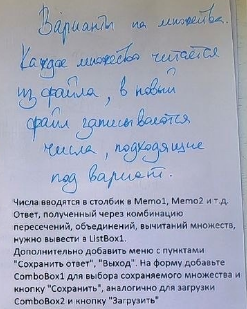 Варианты на множества.
Каждое множество читается
из файла, в новый
файл записываются
числа, подходящие
под вариант.
Числа вводятся в столбик в Memo1, Memo2 и т.д.
Ответ, полученный через комбинацию
пересечений, объединений, вычитаний множеств,
нужно вывести в ListBox1.
Дополнительно добавить меню с пунктами
"Сохранить ответ", "Выход". На форму добавьте
ComboBox1 для выбора сохраняемого множества и
кнопку "Сохранить", аналогично для загрузки
ComboBox2 и кнопку "Загрузить"